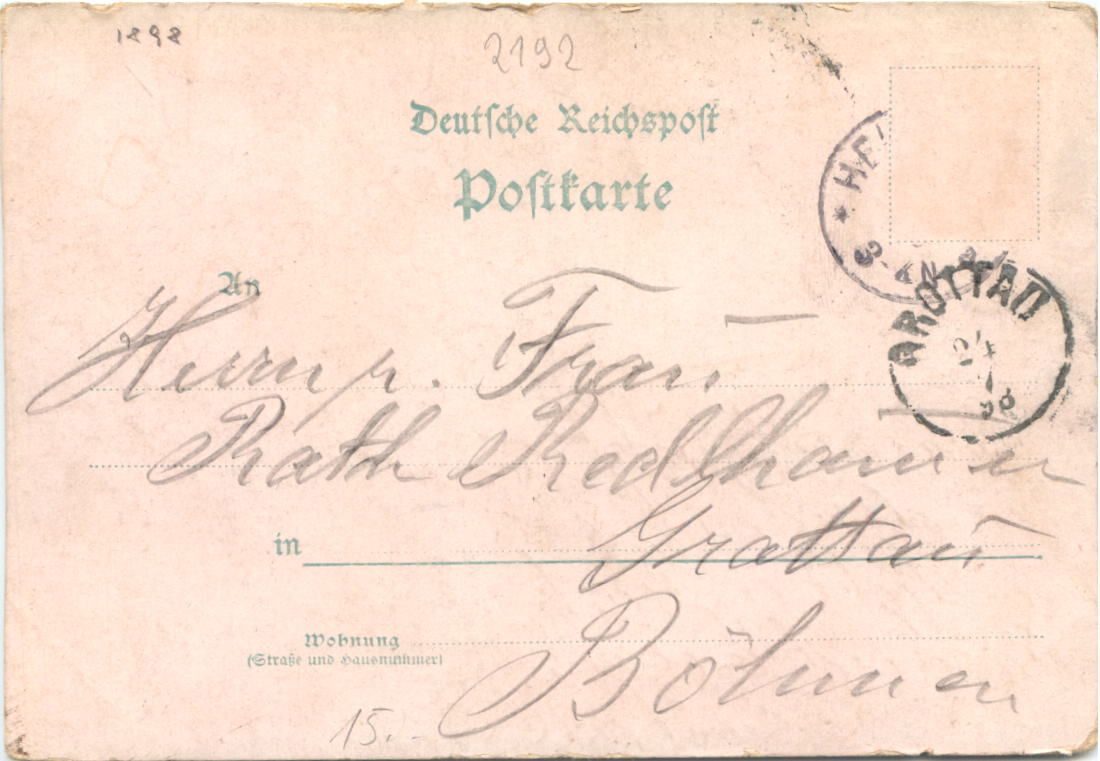 1898
2192
Deutsche Reichspost
Postkarte
HE
3-4N
GROTTAU
24
7
98
An
Herrn u. Frau
Rath Redlhammer
in Grottau
Wohnung
(Straße und Hausnummer)
Böhmen
15.-